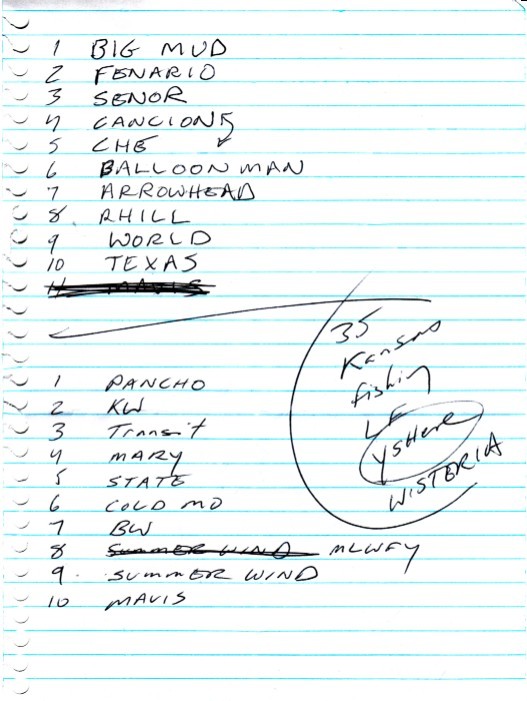 1 BIG MUD
2 FENARIO
3 SENOR
4 CANCION
5 CHE
6 BALLOON MAN
7 ARROWHEAD
8. RHILL
9 WORLD
10 TEXAS
11 MAVIS
35
Kansas
fishing
LF
WISTERIA
1 PANCHO
2 KW
3 Transit
4 MARY
5 STATE
6 COLD MO
7 BW
8 SUMMER WIND MLWFY
9. SUMMER WIND
10 MAVIS